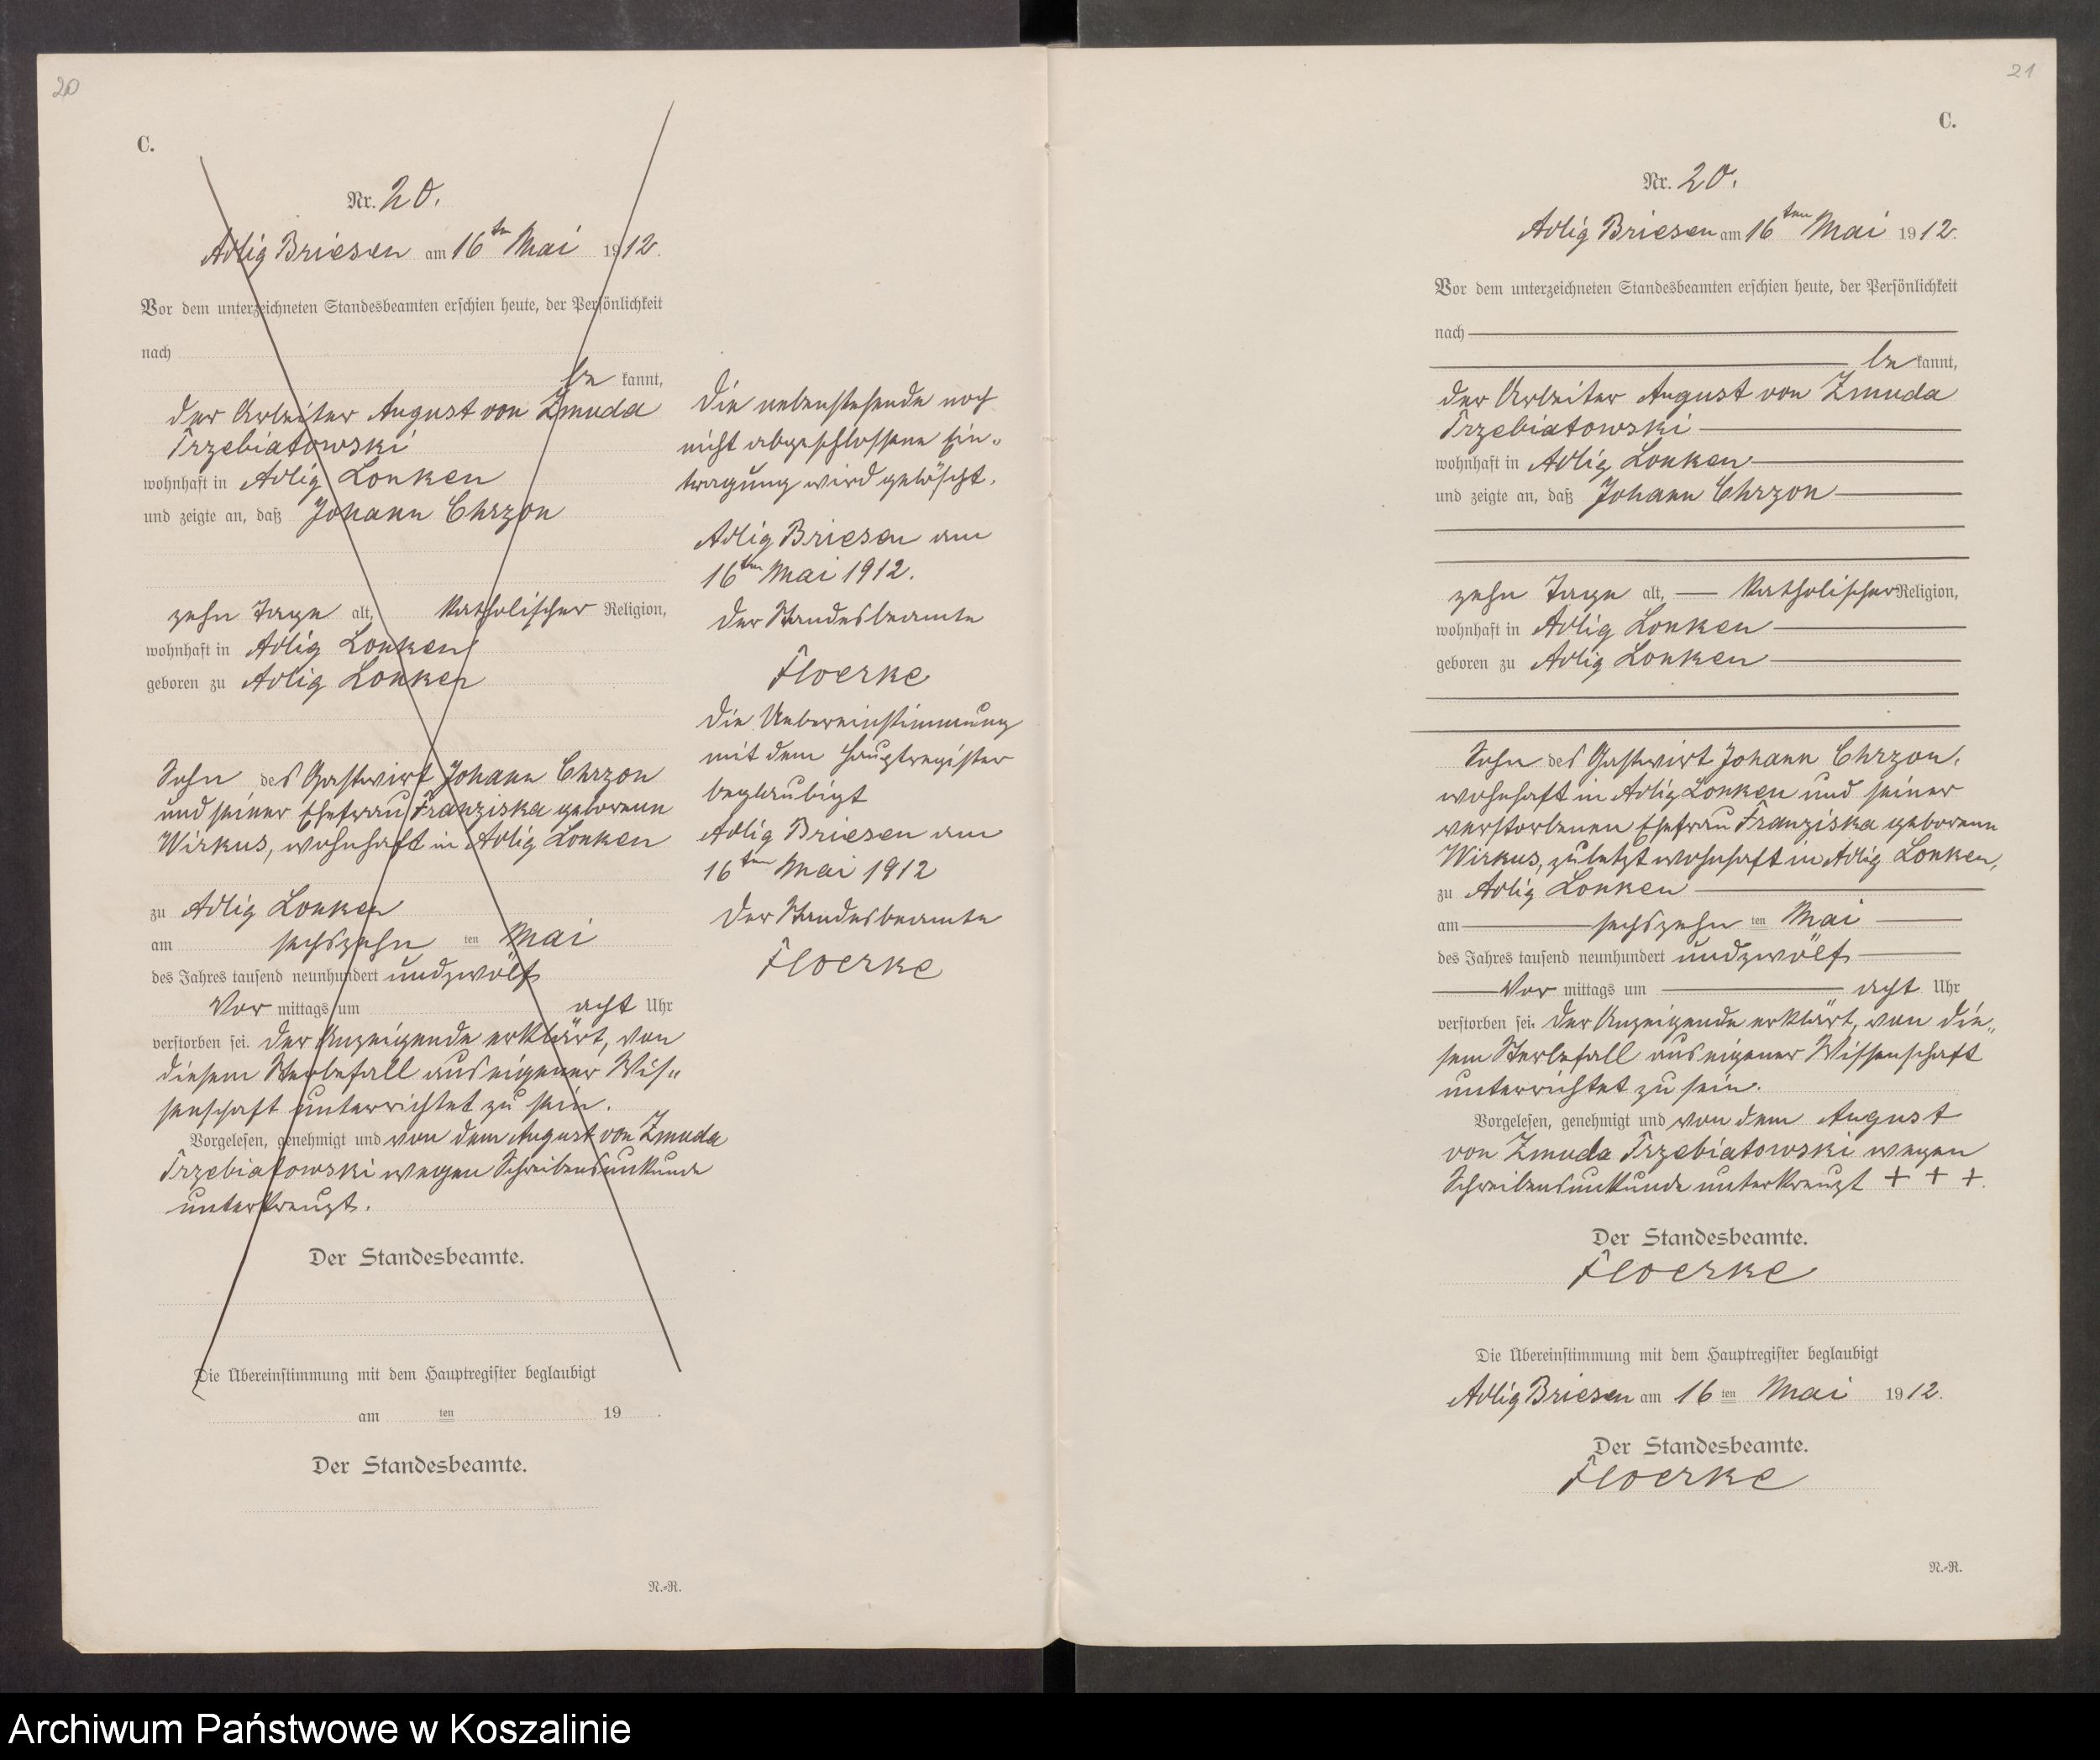 20
C.
Nr. 20.
Adlig Briesen am 16ten Mai 1912.
Vor dem unterzeichneten Standesbeamten erschien heute, der Persönlichkeit
nach
be kannt,
der Arbeiter August von Zmuda
Trzebiatowski
wohnhaft in Adlig Lonken
und zeigte an, daß Johann Chrzon
zehn Tage alt, Katholischer Religion,
wohnhaft in Adlig Lonken
geboren zu Adlig Lonken
Sohn des Gastwirt Johann Chrzon
und seiner Ehefrau Franziska geborenen
Wirkus, wohnhaft in Adlig Lonken
zu Adlig Lonken
am sechszehn ten Mai
des Jahres tausend neunhundert undzwölf
Vor mittags um acht Uhr
verstorben sei. Der Anzeigende erklärt, von
diesem Sterbefall aus eigener Wis„
senschaft unterrichtet zu sein.
Vorgelesen, genehmigt und von dem August von Zmuda
Trzebiatowski wegen Schreibensunkunde
unterkreuzt.
Der Standesbeamte.
Die Übereinstimmung mit dem Hauptregister beglaubigt
am ten 19 .
Der Standesbeamte.
N.-R.
Die nebenstehende noch
nicht abgeschlossene Ein„
tragung wird gelöscht.
Adlig Briesen am
16ten Mai 1912.
Der Standesbeamte
Floerke
Die Uebereinstimmung
mit dem Hauptregister
beglaubigt
Adlig Briesen am
16ten Mai 1912
Der Standesbeamte
Floerke
21
C.
Nr. 20.
Adlig Briesen am 16ten Mai 1912.
Vor dem unterzeichneten Standesbeamten erschien heute, der Persönlichkeit
nach
be kannt,
der Arbeiter August von Zmuda
Trzebiatowski
wohnhaft in Adlig Lonken
und zeigte an, daß Johann Chrzon
zehn Tage alt, Katholischer Religion,
wohnhaft in Adlig Lonken
geboren zu Adlig Lonken
Sohn des Gastwirt Johann Chrzon,
wohnhaft in Adlig Lonken und seiner
verstorbenen Ehefrau Franziska geborenen
Wirkus, zuletzt wohnhaft in Adlig Lonken,
zu Adlig Lonken
am sechszehn ten Mai
des Jahres tausend neunhundert undzwölf
Vor mittags um acht Uhr
verstorben sei. Der Anzeigende erklärt, von die„
sem Sterbefall aus eigener Wissenschaft
unterrichtet zu sein.
Vorgelesen, genehmigt und von dem August
von Zmuda Trzebiatowski wegen
Schreibensunkunde unterkreuzt + + +.
Der Standesbeamte.
Floerke
Die Übereinstimmung mit dem Hauptregister beglaubigt
Adlig Briesen am 16 ten Mai 1912.
Der Standesbeamte.
Floerke
N.-R.
Archiwum Państwowe w Koszalinie